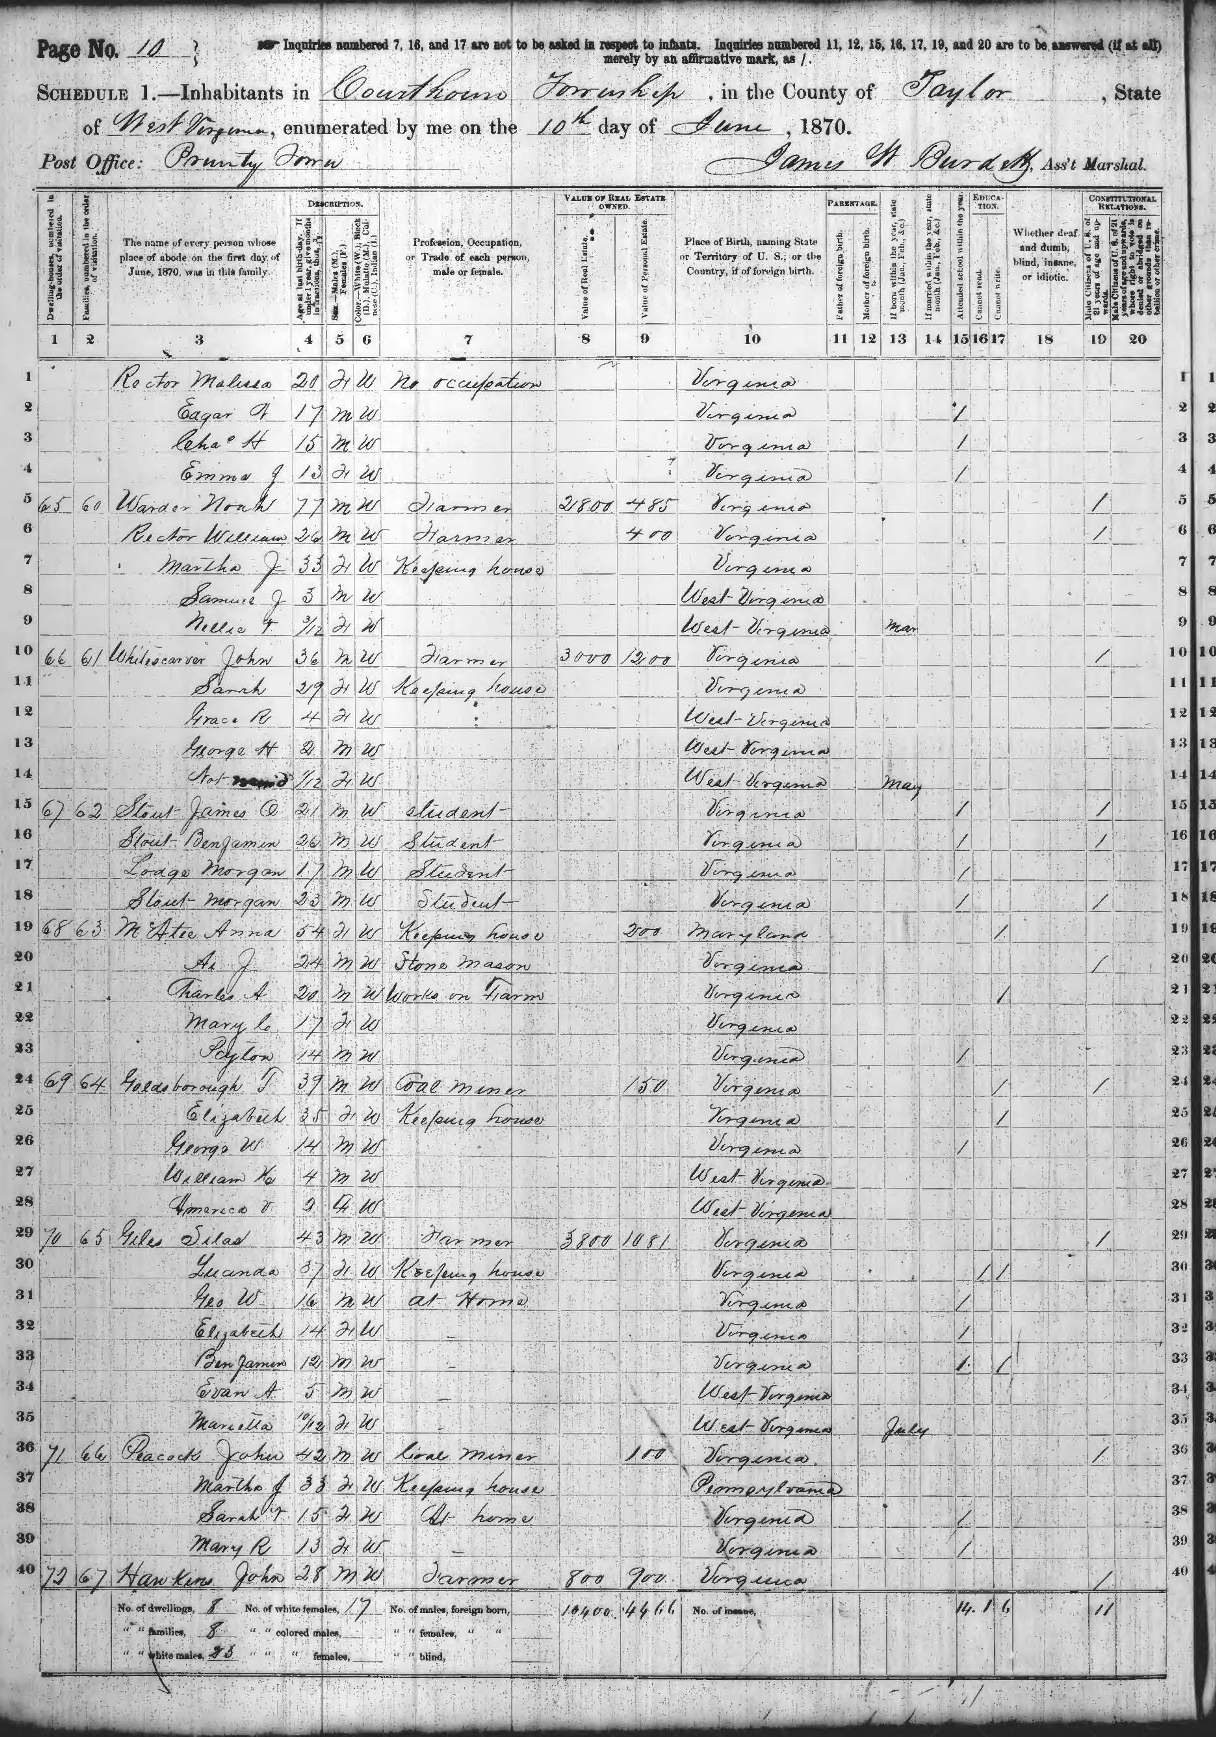 Page No. 10
Inquiries numbered 7, 16, and 17 are not to be asked in respect to infants. Inquiries numbered 11, 12, 15, 16, 17, 19, and 20 are to be answered (if at all)
merely by an affirmative mark, as /.
SCHEDULE 1.—Inhabitants in Courthouse Township, in the County of Taylor, State
of West Virginia, enumerated by me on the 10th day of June, 1870.
Post Office: Prunty Town James W Burdett, Ass't Marshal.
Dwelling-houses, numbered in the order of visitation.
Families, numbered in the order of visitation.
The name of every person whose place of abode on the first day of June, 1870, was in this family.
DESCRIPTION.
Age at last birth-day. If under 1 year, give months in fractions, thus, 3/12
Sex.—Males (M.), Females (F.)
Color.—White (W.), Black (B.), Mulatto (M.), Chinese (C.), Indian (I.)
Profession, Occupation, or Trade of each person, male or female.
VALUE OF REAL ESTATE OWNED.
Value of Real Estate.
Value of Personal Estate.
Place of Birth, naming State or Territory of U. S.; or the Country, if of foreign birth.
PARENTAGE.
Father of foreign birth.
Mother of foreign birth.
If born within the year, state month (Jan., Feb., &c.)
If married within the year, state month (Jan., Feb., &c.)
Attended school within the year.
EDUCATION.
Cannot read.
Cannot write.
Whether deaf and dumb, blind, insane, or idiotic.
CONSTITUTIONAL RELATIONS.
Male Citizens of U. S. of 21 years of age and upwards.
Male Citizens of U. S. of 21 years of age and upwards, whose right to vote is denied or abridged on other grounds than rebellion or other crime.
1 2 3 4 5 6 7 8 9 10 11 12 13 14 15 16 17 18 19 20
1 Rector Malissa 20 F W No occupation Virginia 1
2 Edgar 17 M W Virginia / 2
3 Chas H 15 M W Virginia / 3
4 Emma J 13 F W Virginia / 4
5 65 60 Warder Noah 77 M W Farmer 2800 485 Virginia / 5
6 Rector William 26 M W Farmer 400 Virginia / 6
7 Martha J 33 F W Keeping house Virginia 7
8 Samuel J 3 M W West Virginia 8
9 Nellie F 3/12 F W West Virginia Mar 9
10 66 61 Whitescarver John 36 M W Farmer 3000 1200 Virginia / 10
11 Sarah 29 F W Keeping house Virginia 11
12 Grace R 4 F W West Virginia 12
13 George H 2 M W West Virginia 13
14 Not named 1/12 F W West Virginia May 14
15 67 62 Stout James O 21 M W student Virginia / / 15
16 Stout Benjamin 26 M W Student Virginia / / 16
17 Lodge Morgan 17 M W Student Virginia / 17
18 Stout Morgan 23 M W Student Virginia / / 18
19 68 63 McAtee Anna 54 F W Keeping house 200 Maryland / 19
20 J 24 M W Stone Mason Virginia / 20
21 Charles A 20 M W Works on Farm Virginia / 21
22 Mary C 17 F W Virginia 22
23 Payton 14 M W Virginia / 23
24 69 64 Goldsborough T 39 M W Coal miner 150 Virginia / / 24
25 Elizabeth 35 F W Keeping house Virginia / 25
26 George W 14 M W Virginia / 26
27 William H 4 M W West Virginia 27
28 America V 2 F W West Virginia 28
29 70 65 Giles Silas 43 M W Farmer 3800 1081 Virginia / 29
30 Lucinda 37 F W Keeping house Virginia / / 30
31 Geo W 16 M W at Home Virginia / 31
32 Elizabeth 14 F W Virginia / 32
33 Benjamin 12 M W Virginia / / 33
34 Evan A 5 M W West Virginia 34
35 Marietta 10/12 F W West Virginia July 35
36 71 66 Peacock John 42 M W Coal miner 100 Virginia / 36
37 Martha J 33 F W Keeping house Pennsylvania 37
38 Sarah F 15 F W At home Virginia / 38
39 Mary R 13 F W Virginia / 39
40 72 67 Hawkins John 28 M W Farmer 800 900 Virginia / 40
No. of dwellings, 8 No. of white females, 17 No. of males, foreign born, 10400 4466 No. of insane, 14 1 6 11
" " families, 8 " " colored males, " " females, " "
" " white males, 23 " " " females, " " blind,